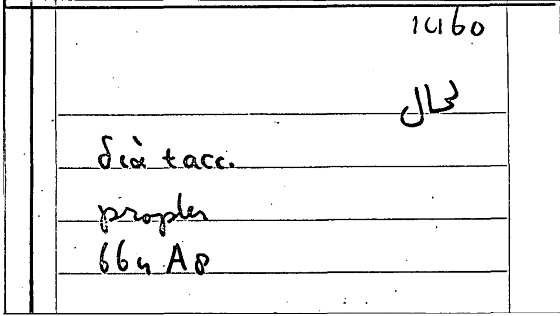 1460
لحال
διὰ + acc.
propter
664 A8